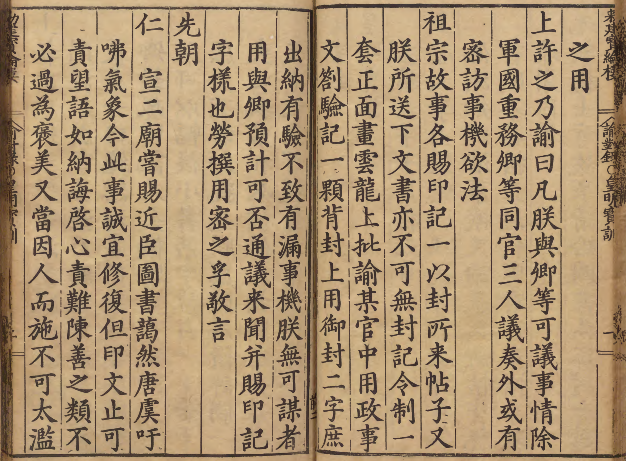 之用
上許之乃諭曰凡朕與卿等可議事情除
軍國重務卿等同官三人議奏外或有
密訪事機欲法
祖宗故事各賜印記一以封所来帖子又
朕所送下文書亦不可無封記令制一
套正面畫雲龍上批諭某官中用政事
文劄驗記一顆背封上用御封二字庶
出納有驗不致有漏事機朕無可謀者
用與卿預計可否通議来聞并賜印記
字樣也勞撰用密之孚敬言
先朝
仁　宣二廟嘗賜近臣圖書藹然唐虞吁
咈氣象今此事誠宜修復但印文止可
責望語如納誨啓心責難陳善之類不
必過為褒美又當因人而施不可太濫